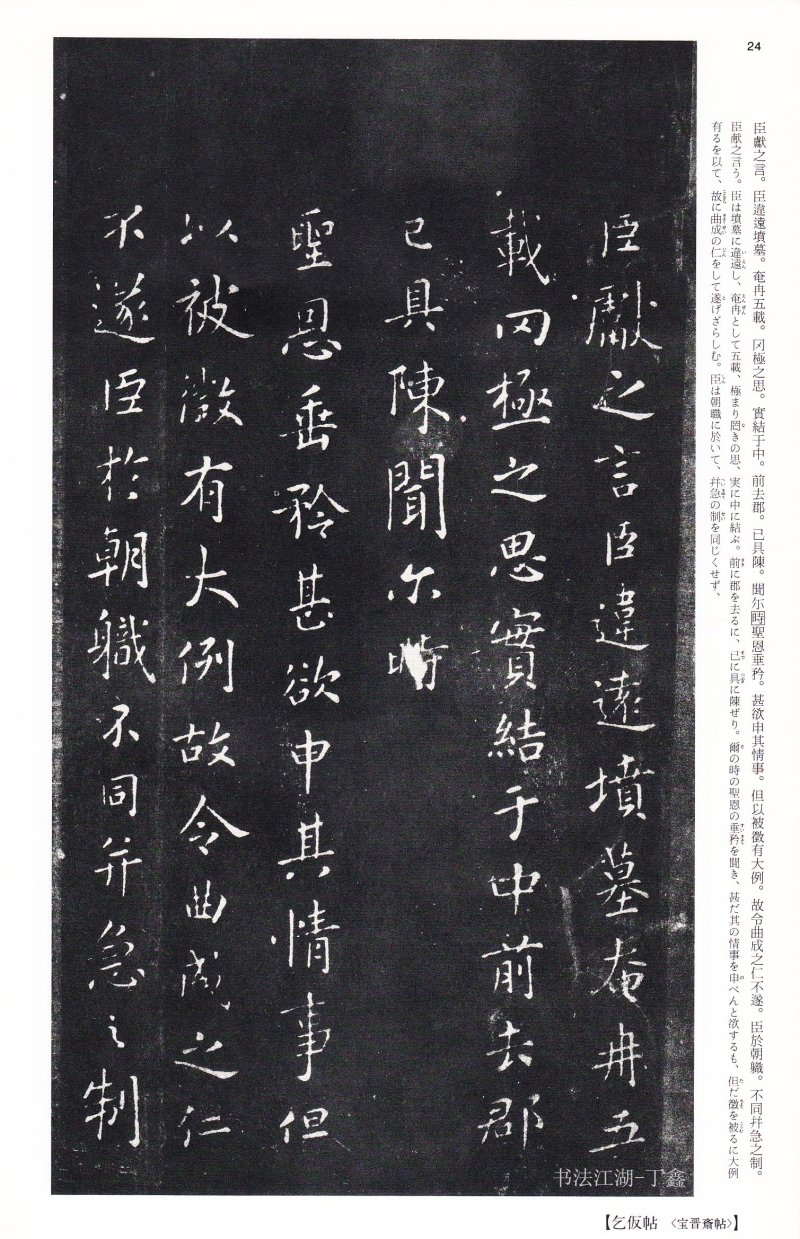 24
臣獻之言。臣違遠墳墓。奄冉五載。罔極之思。實結于中。前去郡。已具陳。聞尓時聖恩垂矜。甚欲申其情事。但以被徵有大例。故令曲成之仁不遂。臣於朝職。不同幷急之制。
臣献之言う。臣は墳墓に違遠し、奄冉として五載、極まり罔きの思、実に中に結ぶ。前に郡を去るに、已に具に陳ぜり。爾の時の聖恩の垂矜を聞き、甚だ其の情事を申べんと欲するも、但だ徵を被るに大例
有るを以て、故に曲成の仁をして遂げざらしむ。臣は朝職に於いて、幷急の制を同じくせず、
臣獻之言臣違遠墳墓奄冉五
載罔極之思實結于中前去郡
已具陳聞尓時
聖恩垂矜甚欲申其情事但
以被徵有大例故令曲成之仁
不遂臣於朝職不同幷急之制
书法江湖-丁鑫
【乞仮帖 〈宝晋斎帖〉】